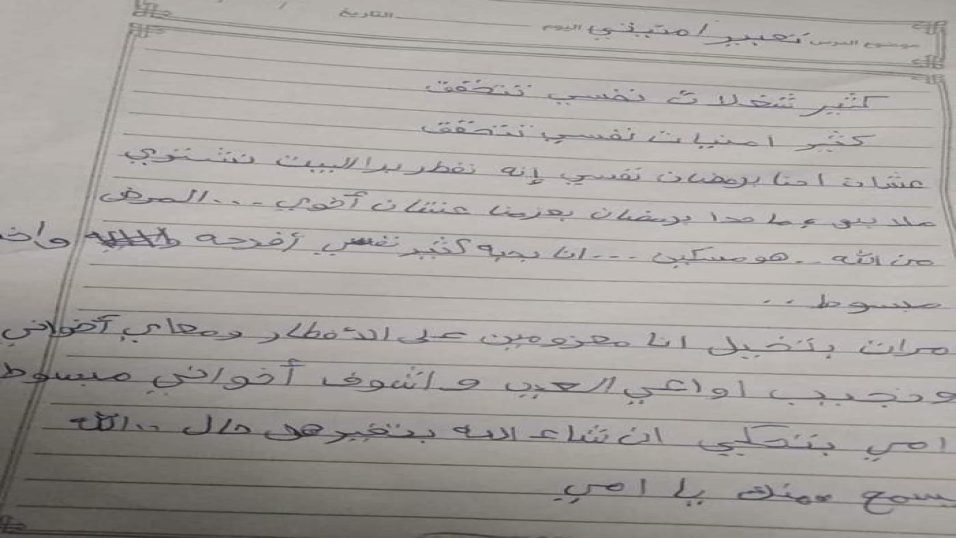 موضوع الدرس تعبير / متبني اليوم التاريخ
كثير شغلات نفسي تتحقق
كثير امنيات نفسي تتحقق
عشان احنا برمضان نفسي إنه نفطر برا البيت نشتري
ملابس و ما حدا برمضان يعزمنا عشان أخوي ... المرض
من الله .. هو مسكين ... انا بحبه كثير نفسي أفرحه
مبسوط ..
مرات بتخيل انا معزومين على الأفطار ومعاي أخواني
ونجيب اواعي العيد و اشوف أخواني مبسوط
امي بتحكي ان شاء الله بتغير هل حال .. الله
يسمع منك يا امي